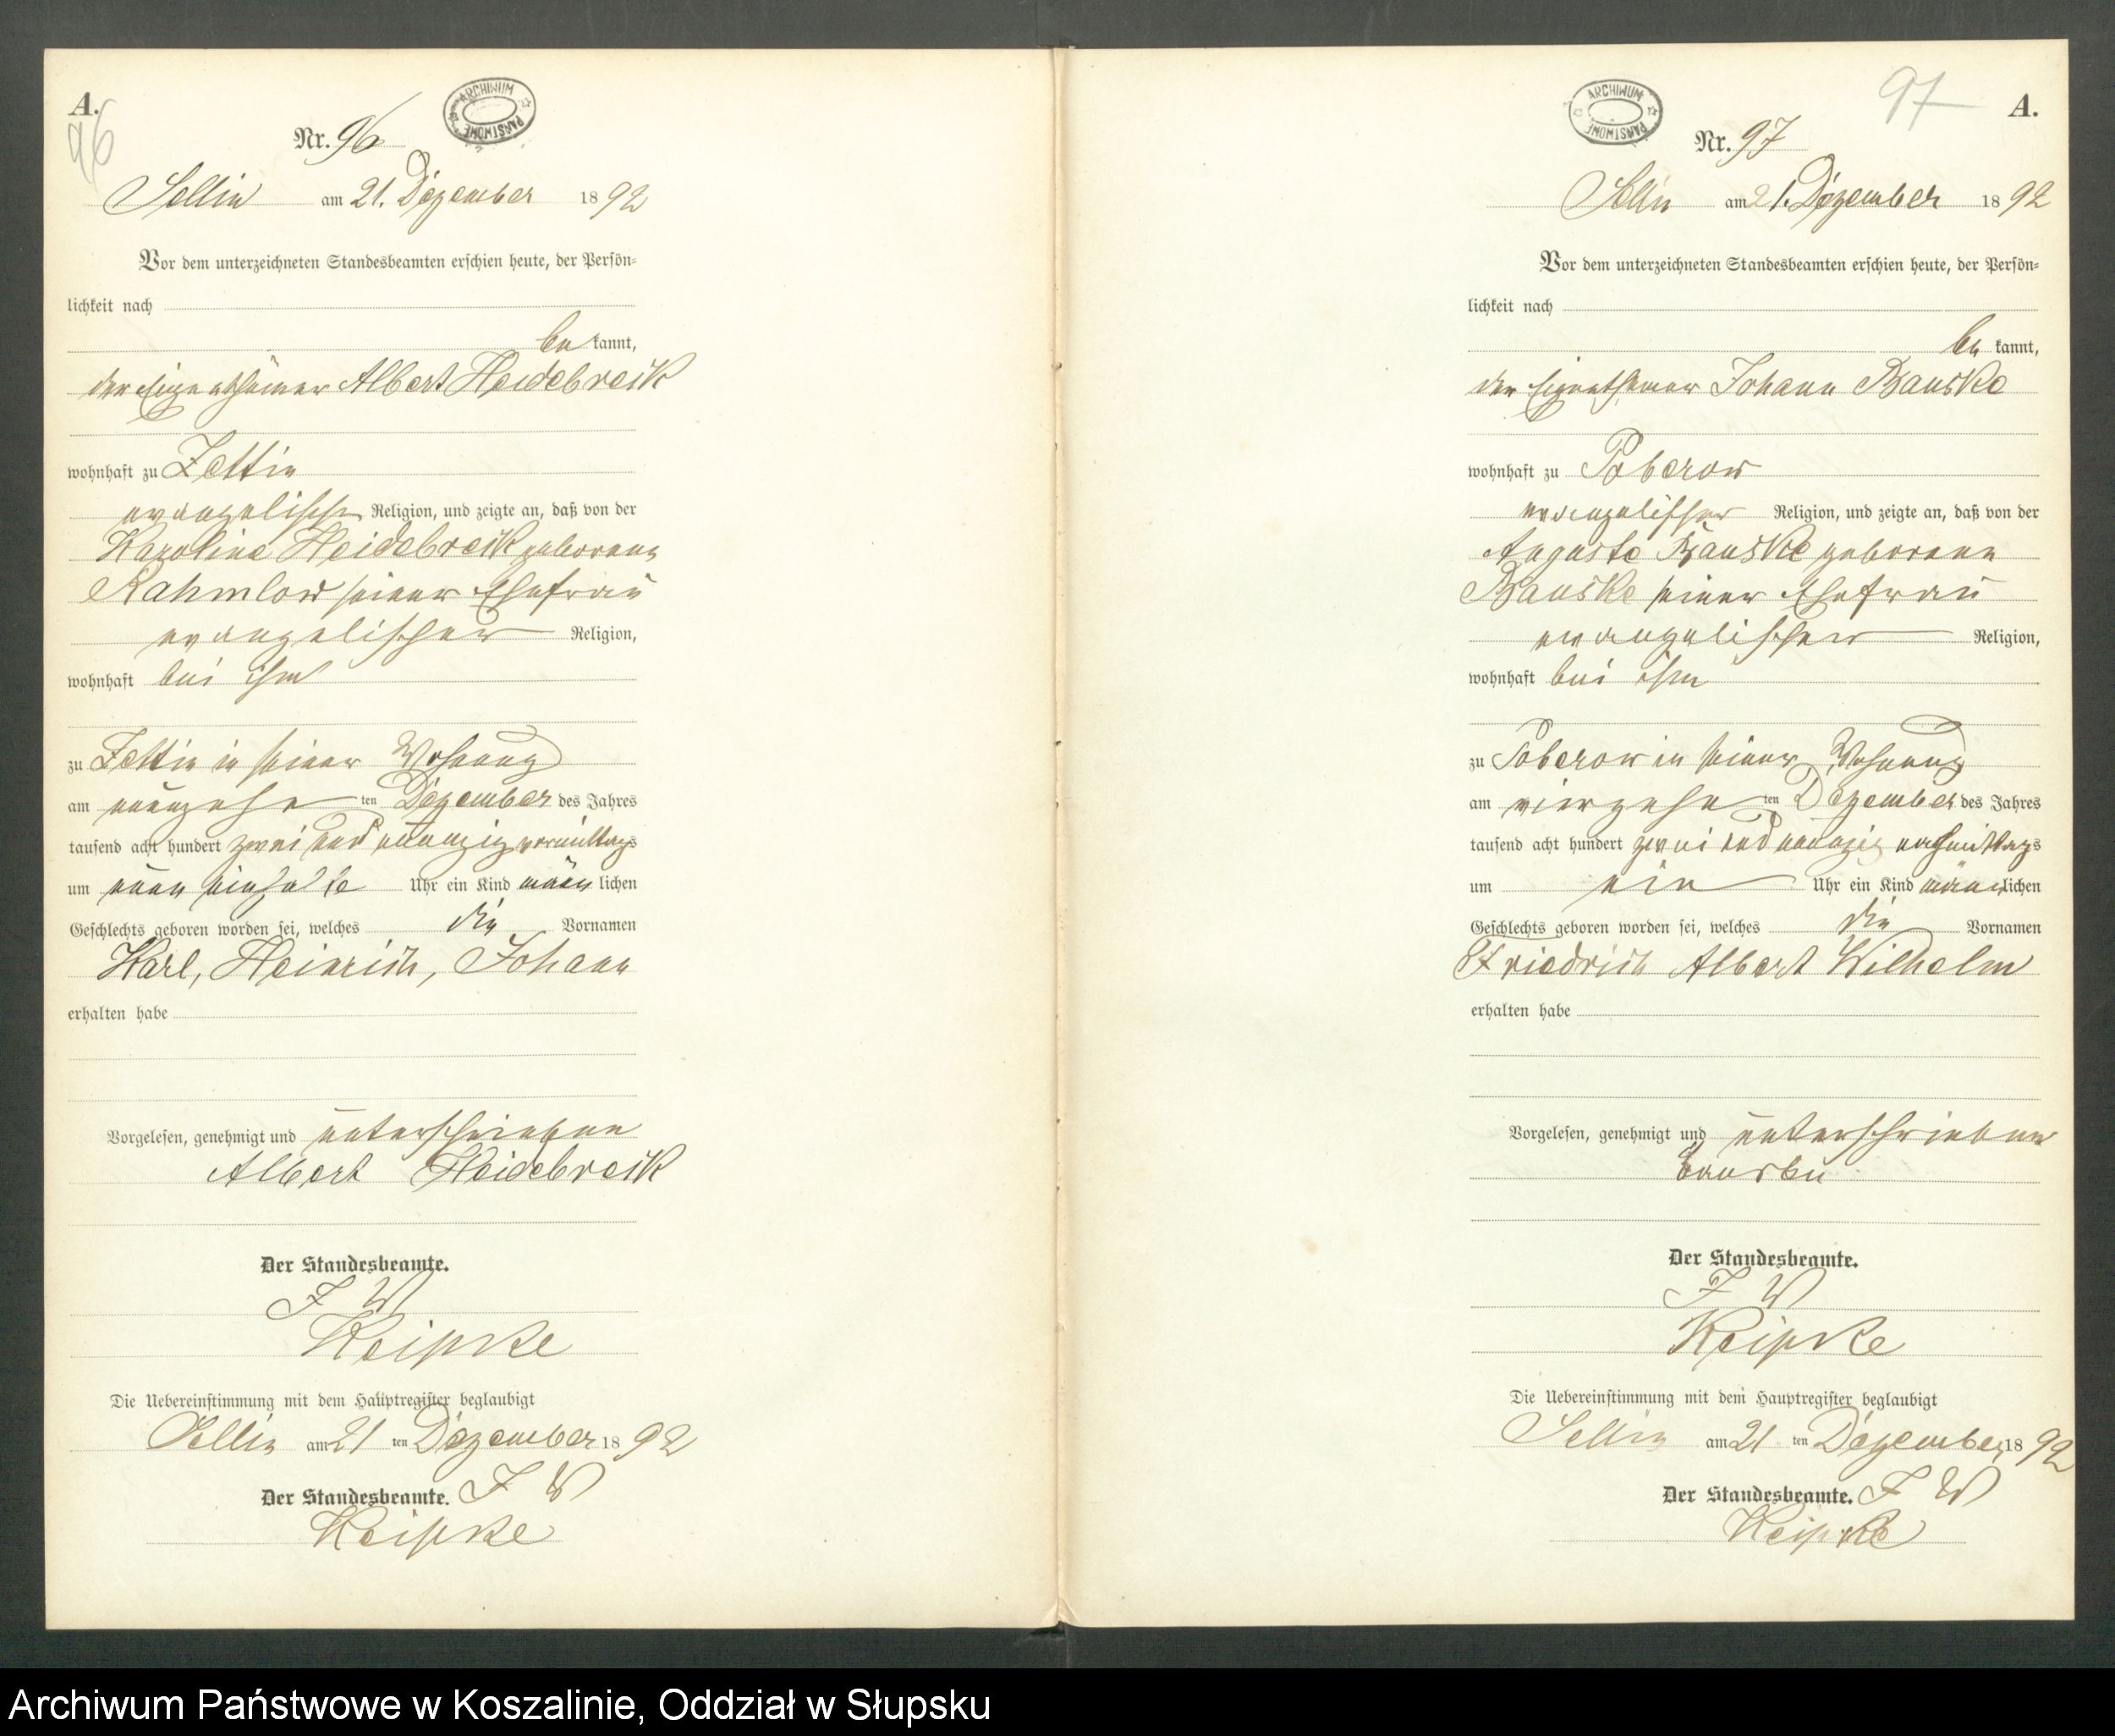 A.
96
ARCHIWUM PAŃSTWOWE
Nr. 96
Sellin am 21. Dezember 1892
Vor dem unterzeichneten Standesbeamten erschien heute, der Persön-
lichkeit nach
be kannt,
der Eigenthümer Albert Heidebreck
wohnhaft zu Zettin
evangelischer Religion, und zeigte an, daß von der
Karoline Heidebreck geborene
Rahmlow seiner Ehefrau
evangelischer Religion,
wohnhaft bei ihm
zu Zettin in seiner Wohnung
am neunzehn ten Dezember des Jahres
tausend acht hundert zwei und neunzig vormittags
um neun einhalb Uhr ein Kind männ lichen
Geschlechts geboren worden sei, welches die Vornamen
Karl, Heinrich, Johann
erhalten habe
Vorgelesen, genehmigt und unterschrieben
Albert Heidebreck
Der Standesbeamte.
F W
Keipke
Die Uebereinstimmung mit dem Hauptregister beglaubigt
Sellin am 21 ten Dezember 1892
Der Standesbeamte. F W
Keipke
97
A.
ARCHIWUM PAŃSTWOWE
Nr. 97
Sellin am 21. Dezember 1892
Vor dem unterzeichneten Standesbeamten erschien heute, der Persön-
lichkeit nach
be kannt,
der Eigenthümer Johann Banske
wohnhaft zu Poberow
evangelischer Religion, und zeigte an, daß von der
Auguste Banske geborene
Banske seiner Ehefrau
evangelischer Religion,
wohnhaft bei ihm
zu Poberow in seiner Wohnung
am vierzehn ten Dezember des Jahres
tausend acht hundert zwei und neunzig nachmittags
um ein Uhr ein Kind männlichen
Geschlechts geboren worden sei, welches die Vornamen
Friedrich Albert Wilhelm
erhalten habe
Vorgelesen, genehmigt und unterschrieben
Banske
Der Standesbeamte.
F W
Keipke
Die Uebereinstimmung mit dem Hauptregister beglaubigt
Sellin am 21 ten Dezember 1892
Der Standesbeamte. F W
Keipke
Archiwum Państwowe w Koszalinie, Oddział w Słupsku